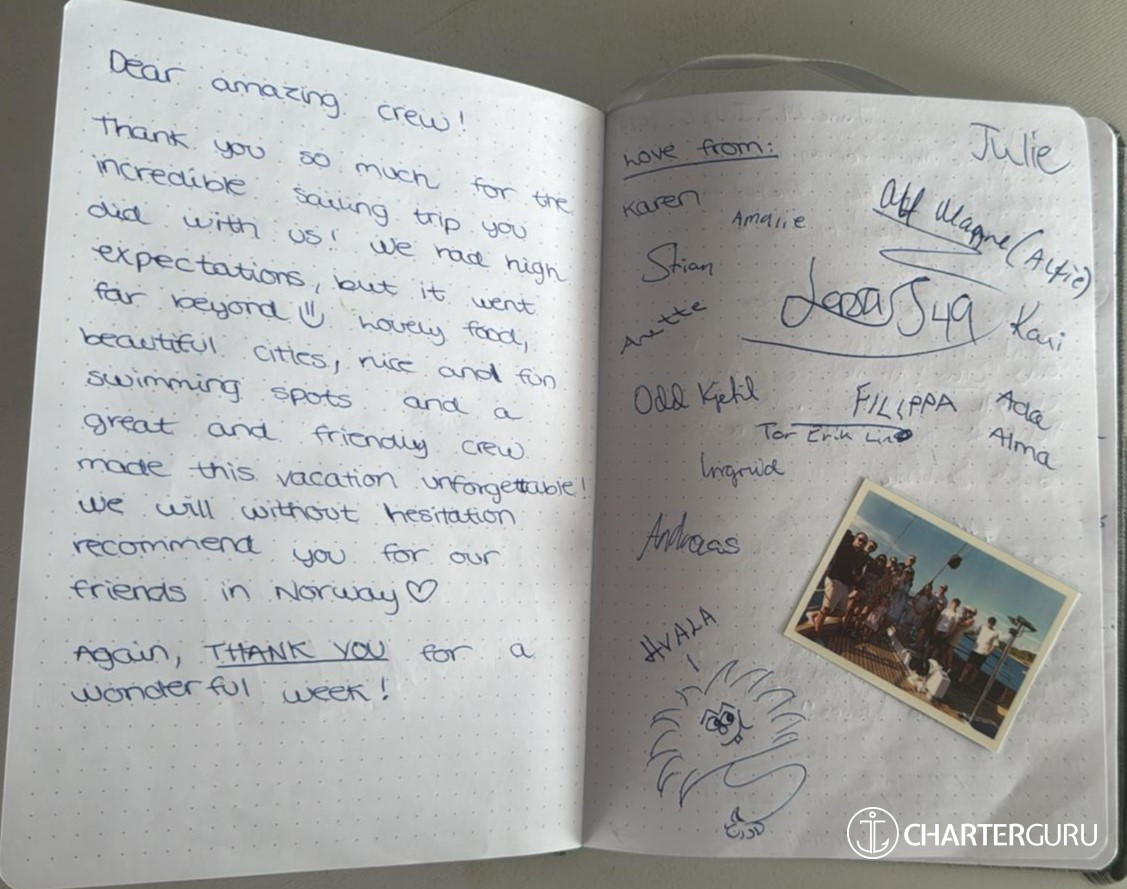 Dear amazing crew!
Thank you so much for the
incredible sailing trip you
did with us! We had high
expectations, but it went
far beyond Lovely food,
beautiful cities, nice and fun
swimming spots and a
great and friendly crew
made this vacation unforgettable!
We will without hesitation
recommend you for our
friends in Norway♡
Again, THANK YOU for a
wonderful week!
Love from:
Julie
Karen
Amalie
(Alfie)
Stian
Kari
Anette
Odd Kjetil
FILIPPA
Ada
Tor Erik
Alma
Ingrid
Andreas
HVALA
!
CHARTERGURU